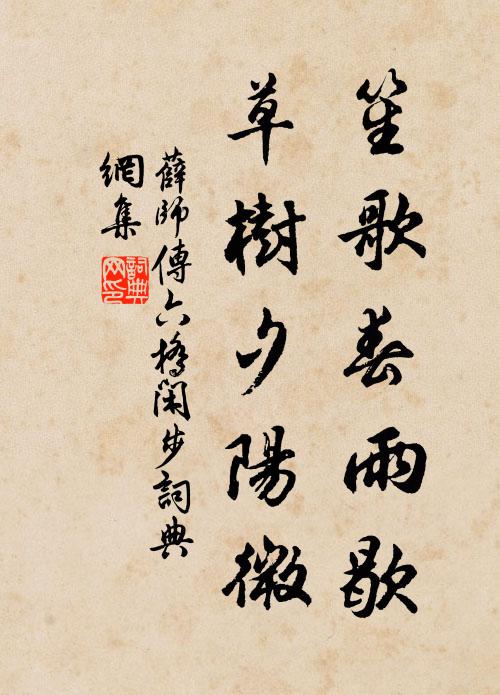 笙歌春雨歇
草樹夕陽微
薛師傅六橋閑步詞典
網集
詞典
网印